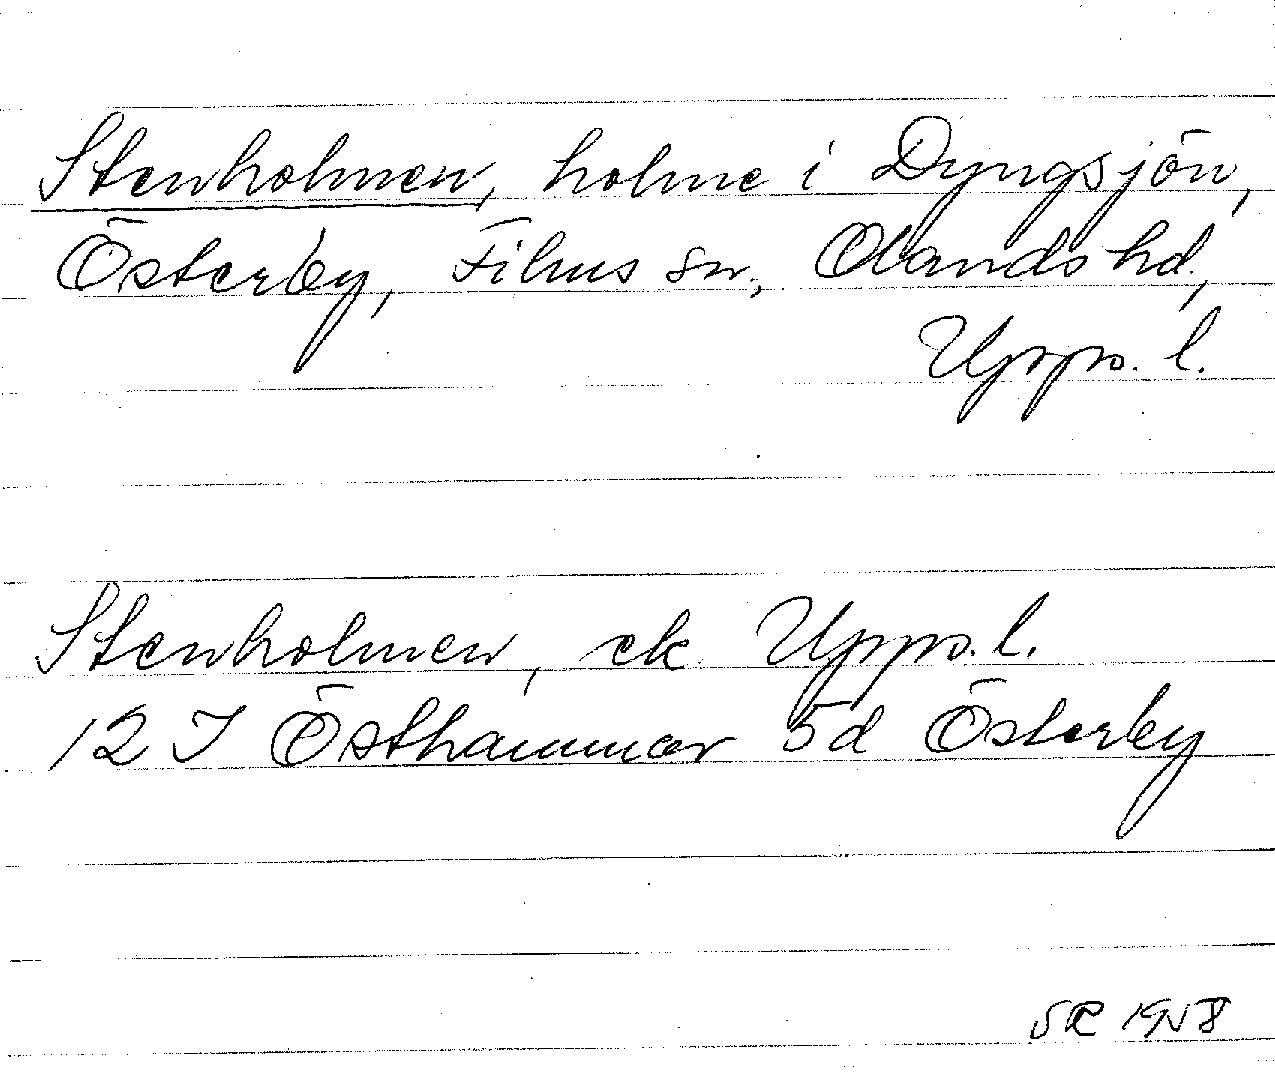 Stenholmen, holme i Dyngsjön,
Österby, Films sn, Olands hd,
Upps. l.
Stenholmen, ek Upps. l.
12 I Östhammar 5d Österby
SR 1958